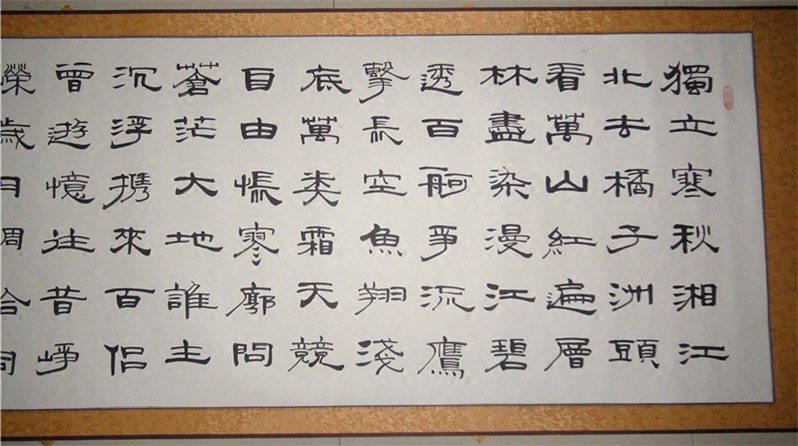 獨立寒秋湘江
北去橘子洲頭
看萬山紅遍層
林盡染漫江碧
透百舸爭流鷹
擊長空魚翔淺
底萬类霜天競
自由悵寥廓問
蒼茫大地誰主
沉浮携來百侣
曾遊憶往昔崢
嶸歲月稠恰同